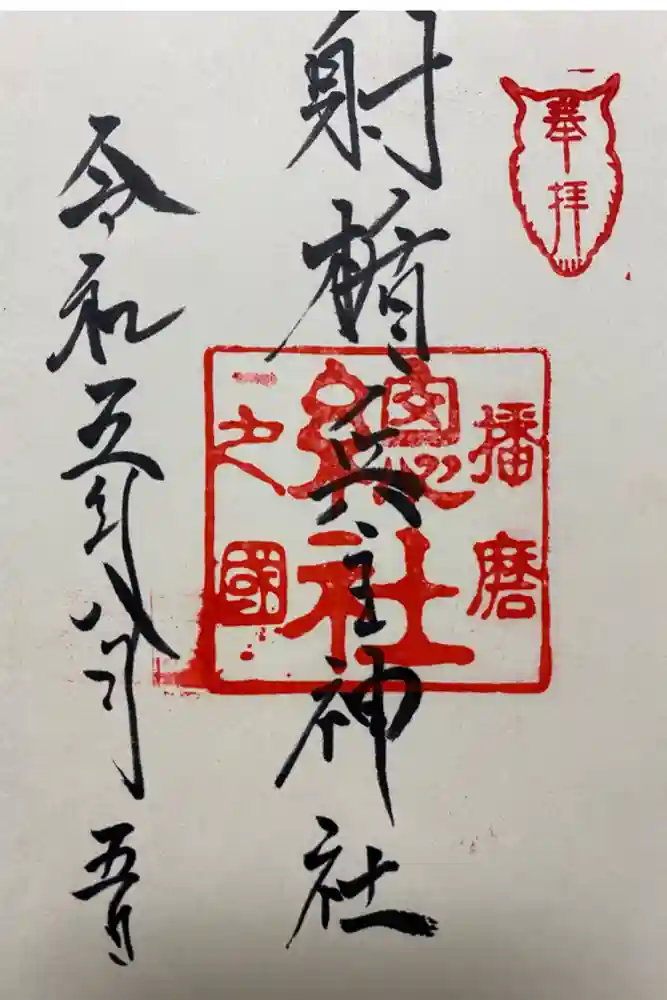 奉拝
播磨
總社
之國
射楯兵主神社
令和五年八月五日